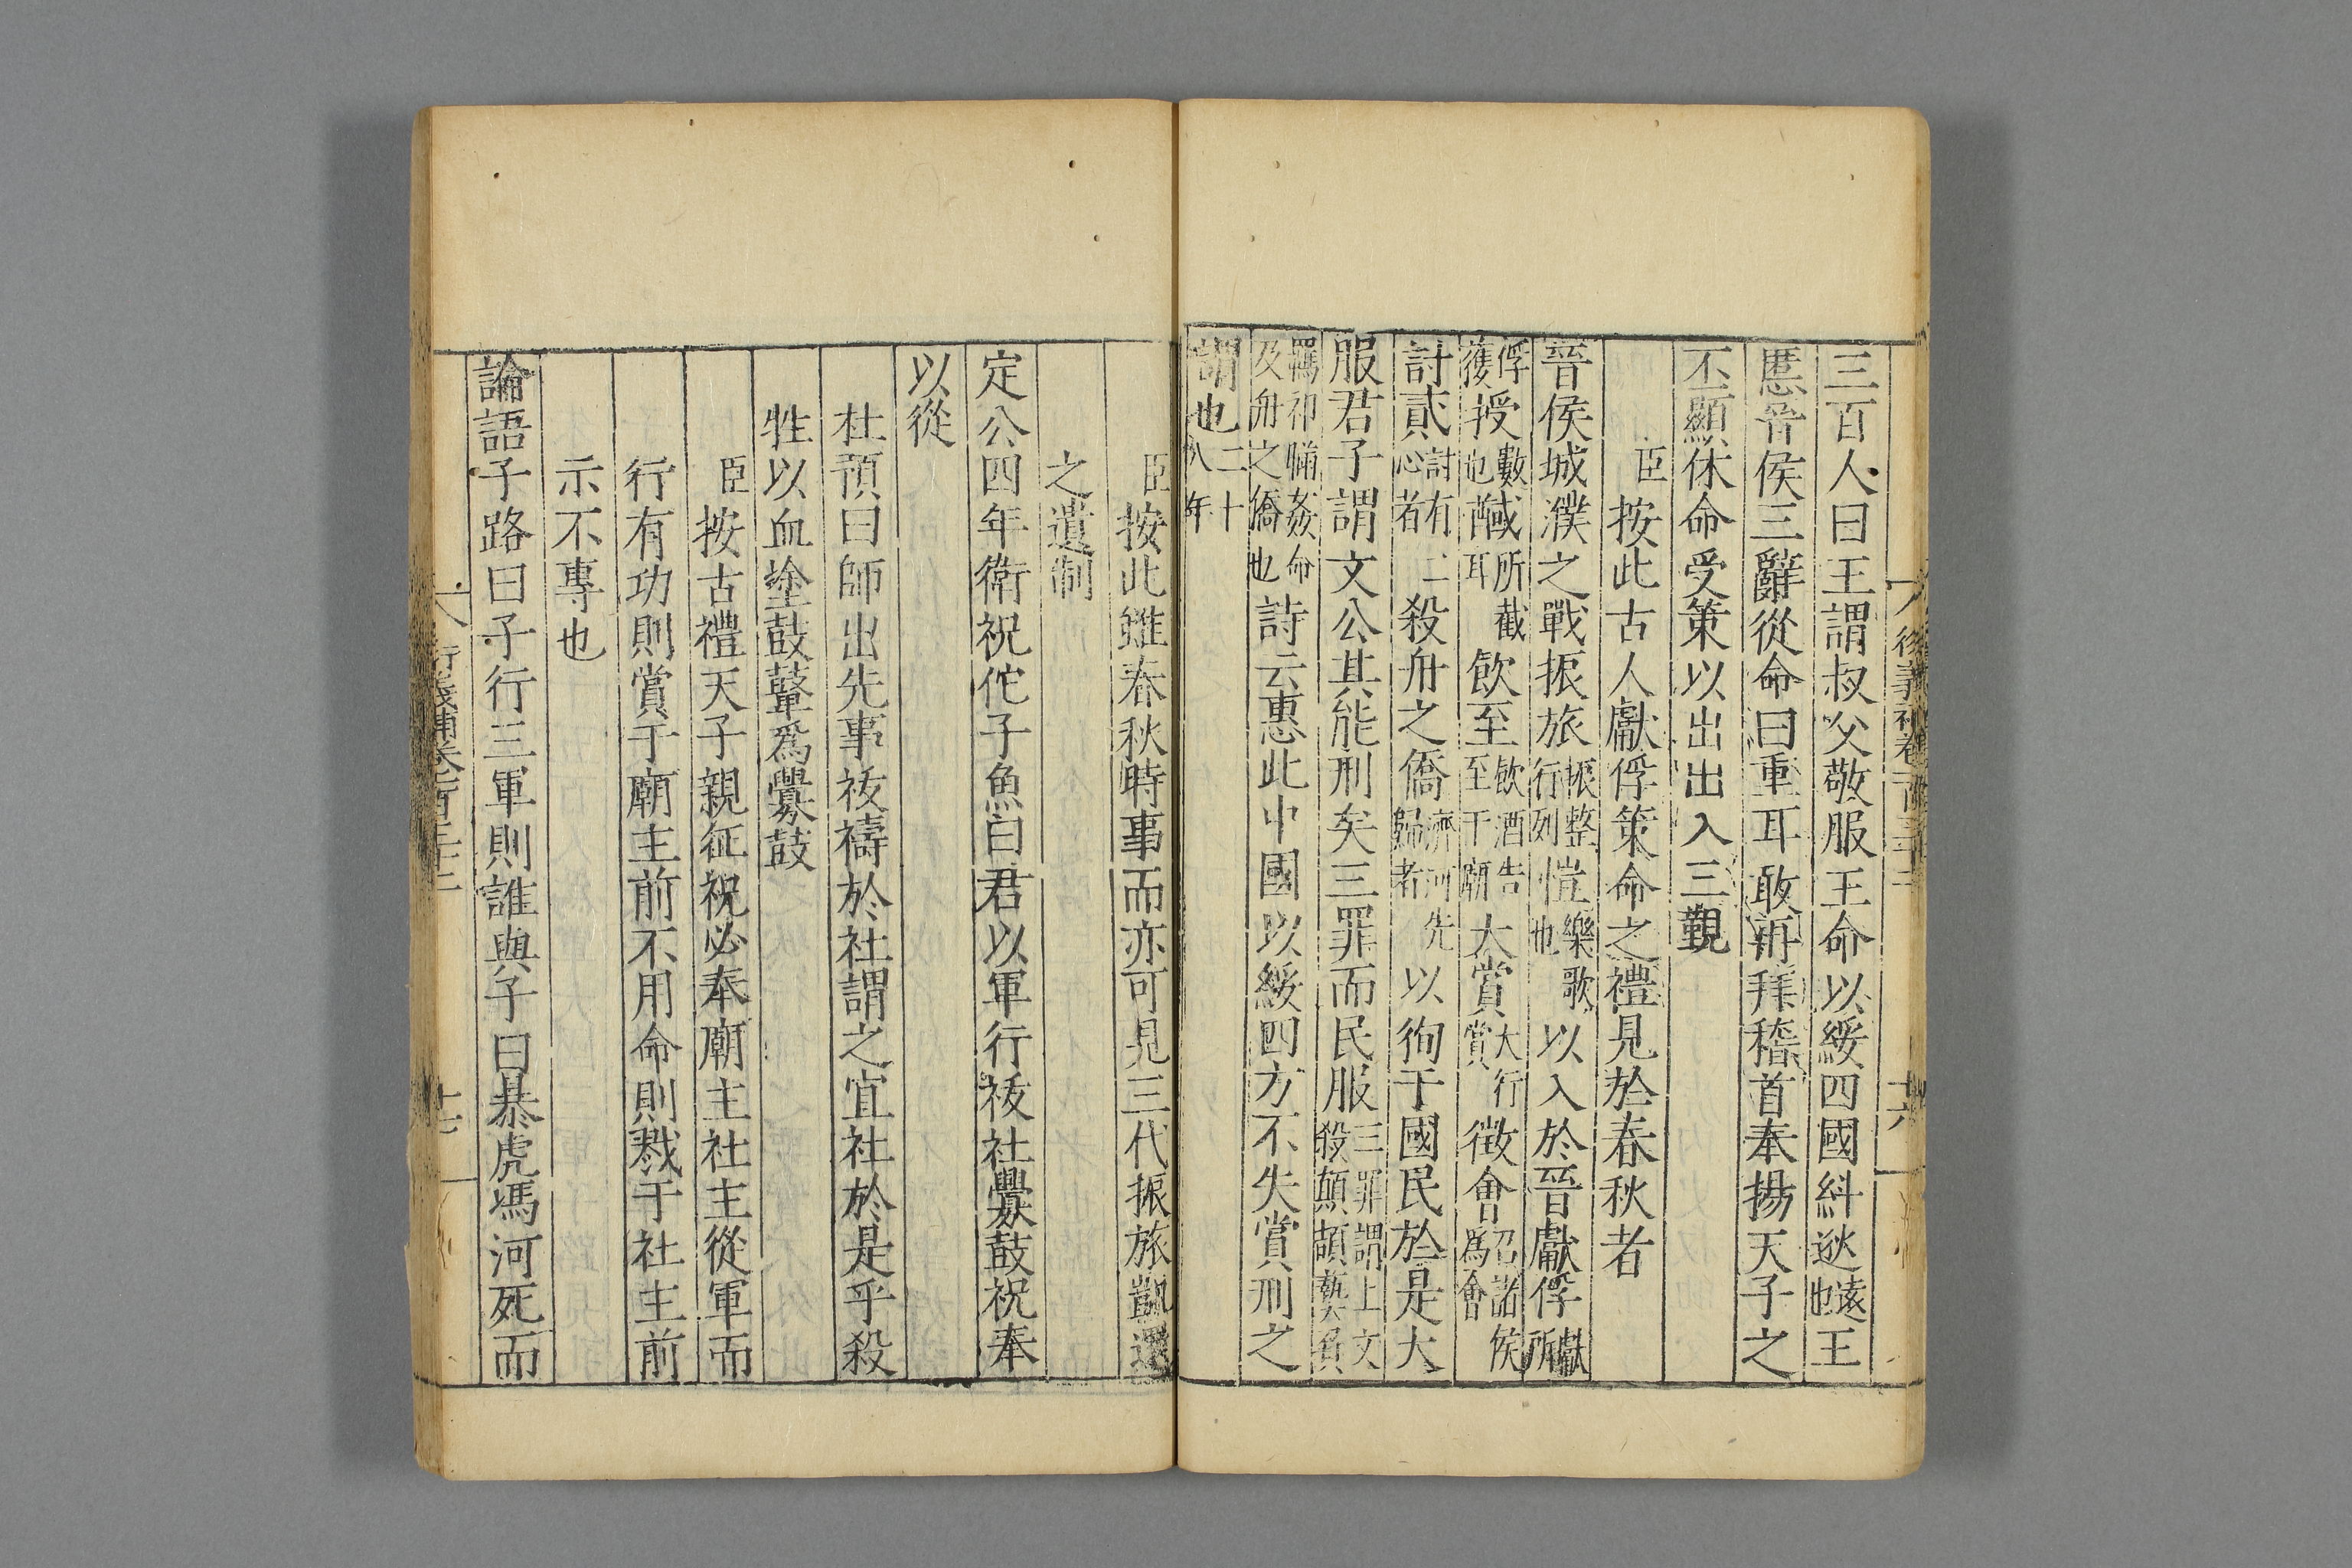 三百人曰王謂叔父敬服王命以綏四國糾逖遠也王
慝晉侯三辭從命曰重耳敢再拜稽首奉揚天子之
丕顯休命受策以出出入三覲
臣按此古人獻俘策命之禮見於春秋者
晉侯城濮之戰振旅振整行列愷樂歌也以入於晉獻俘獻所
俘獲授數也馘所截耳飲至飲酒告至于廟大賞大行賞徵會召諸侯爲會
討貳討有二心者殺舟之僑濟河先歸者以徇于國民於是大
服君子謂文公其能刑矣三罪而民服三罪謂上文殺顛頡藝負
羈祁瞞姦命及舟之僑也詩云惠此中國以綏四方不失賞刑之
謂也二十八年
臣按此雖春秋時事而亦可見三代振旅凱還
之遺制
定公四年衛祝佗子魚曰君以軍行祓社釁鼓祝奉
以從
杜預曰師出先事祓禱於社謂之宜社於是乎殺
牲以血塗鼓鼙爲釁鼓
臣按古禮天子親征祝必奉廟主社主從軍而
行有功則賞于廟主前不用命則戮于社主前
示不專也
論語子路曰子行三軍則誰與子曰暴虎馮河死而